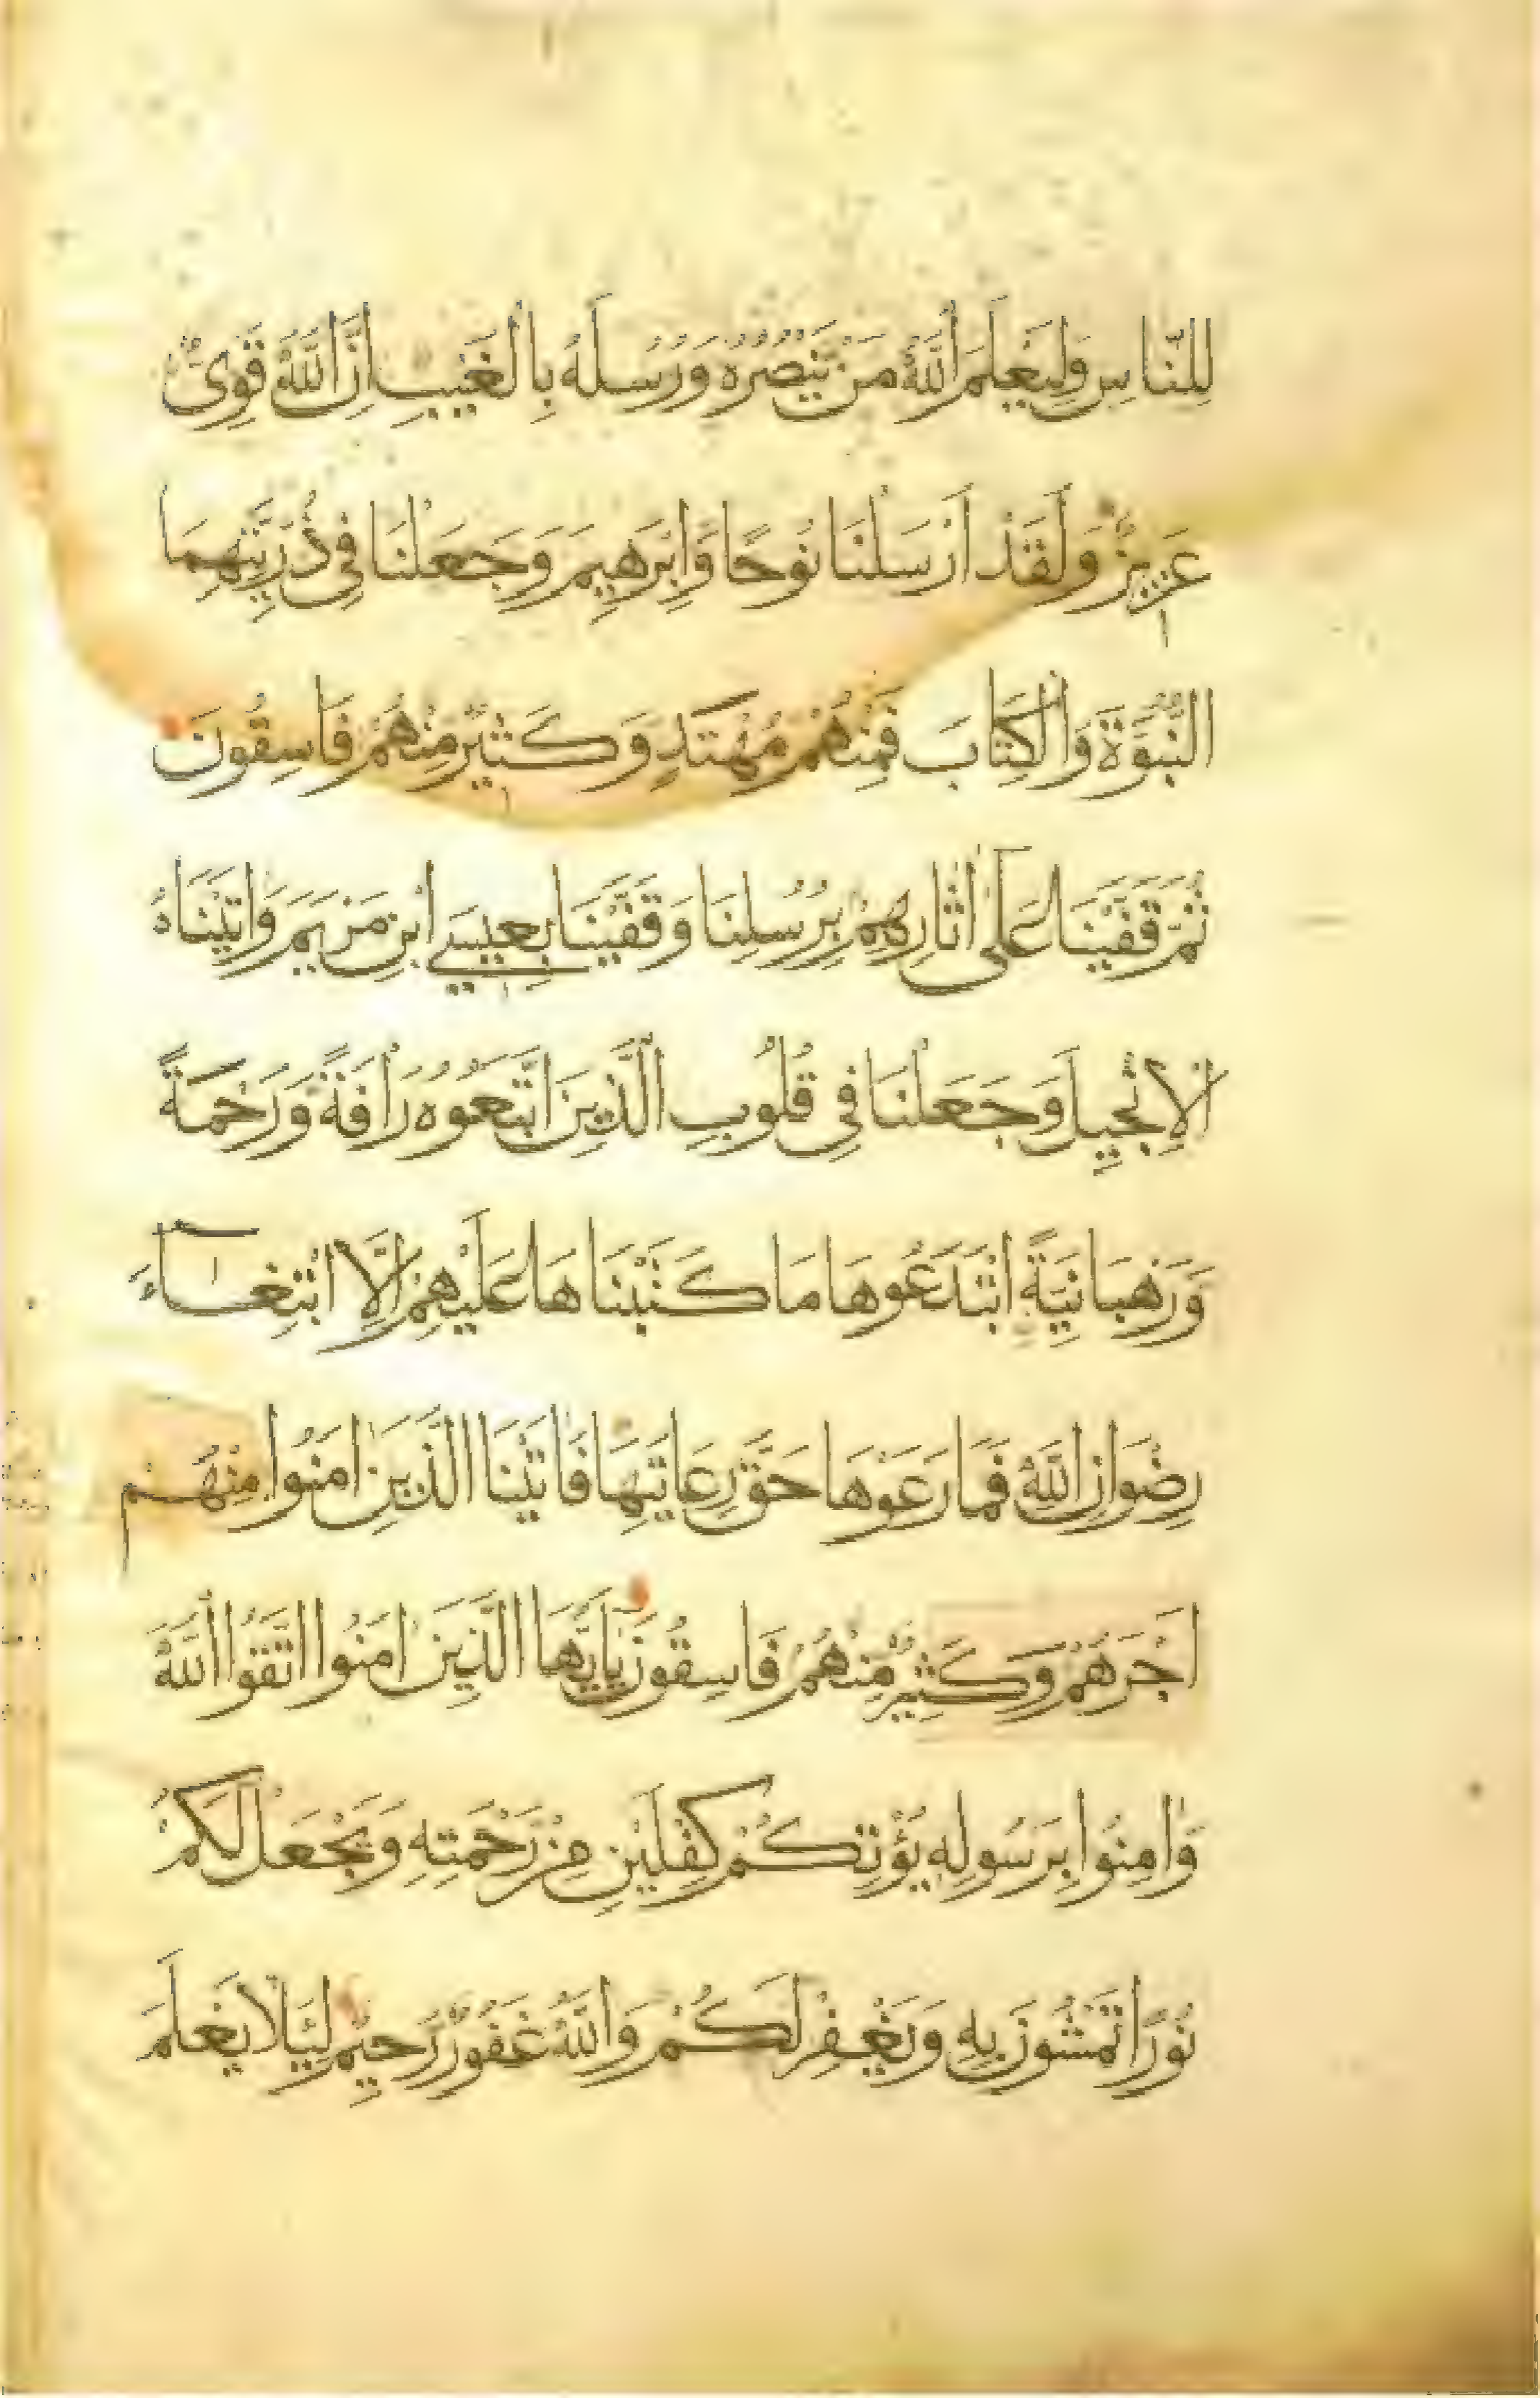 لِلنَّاسِ وَلِيَعْلَمَ اللَّهُ مَنْ يَنْصُرُهُ وَرُسُلَهُ بِالْغَيْبِ اِنَّ اللَّهَ قَوِىٌّ
عَزِيزٌ وَلَقَدْ اَرْسَلْنَا نُوحًا وَاِبْرَهِيمَ وَجَعَلْنَا فِى ذُرِّيَّتِهِمَا
النُّبُوَّةَ وَالْكِتَابَ فَمِنْهُمْ مُهْتَدٍ وَكَثِيرٌ مِنْهُمْ فَاسِقُونَ
ثُمَّ قَفَّيْنَا عَلَى اثَارِهِمْ بِرُسُلِنَا وَقَفَّيْنَا بِعِيسَى ابْنِ مَرْيَمَ وَاتَيْنَاهُ
الْاِنْجِيلَ وَجَعَلْنَا فِى قُلُوبِ الَّذِينَ اتَّبَعُوهُ رَاْفَةً وَرَحْمَةً
وَرَهْبَانِيَّةً ابْتَدَعُوهَا مَا كَتَبْنَاهَا عَلَيْهِمْ اِلَّا ابْتِغَاءَ
رِضْوَانِ اللَّهِ فَمَا رَعَوْهَا حَقَّ رِعَايَتِهَا فَاتَيْنَا الَّذِينَ امَنُوا مِنْهُمْ
اَجْرَهُمْ وَكَثِيرٌ مِنْهُمْ فَاسِقُونَ يَاَيُّهَا الَّذِينَ امَنُوا اتَّقُوا اللَّهَ
وَامِنُوا بِرَسُولِهِ يُؤْتِكُمْ كِفْلَيْنِ مِنْ رَحْمَتِهِ وَيَجْعَلْ لَكُمْ
نُورًا تَمْشُونَ بِهِ وَيَغْفِرْ لَكُمْ وَاللَّهُ غَفُورٌ رَحِيمٌ لِئَلَّا يَعْلَمَ